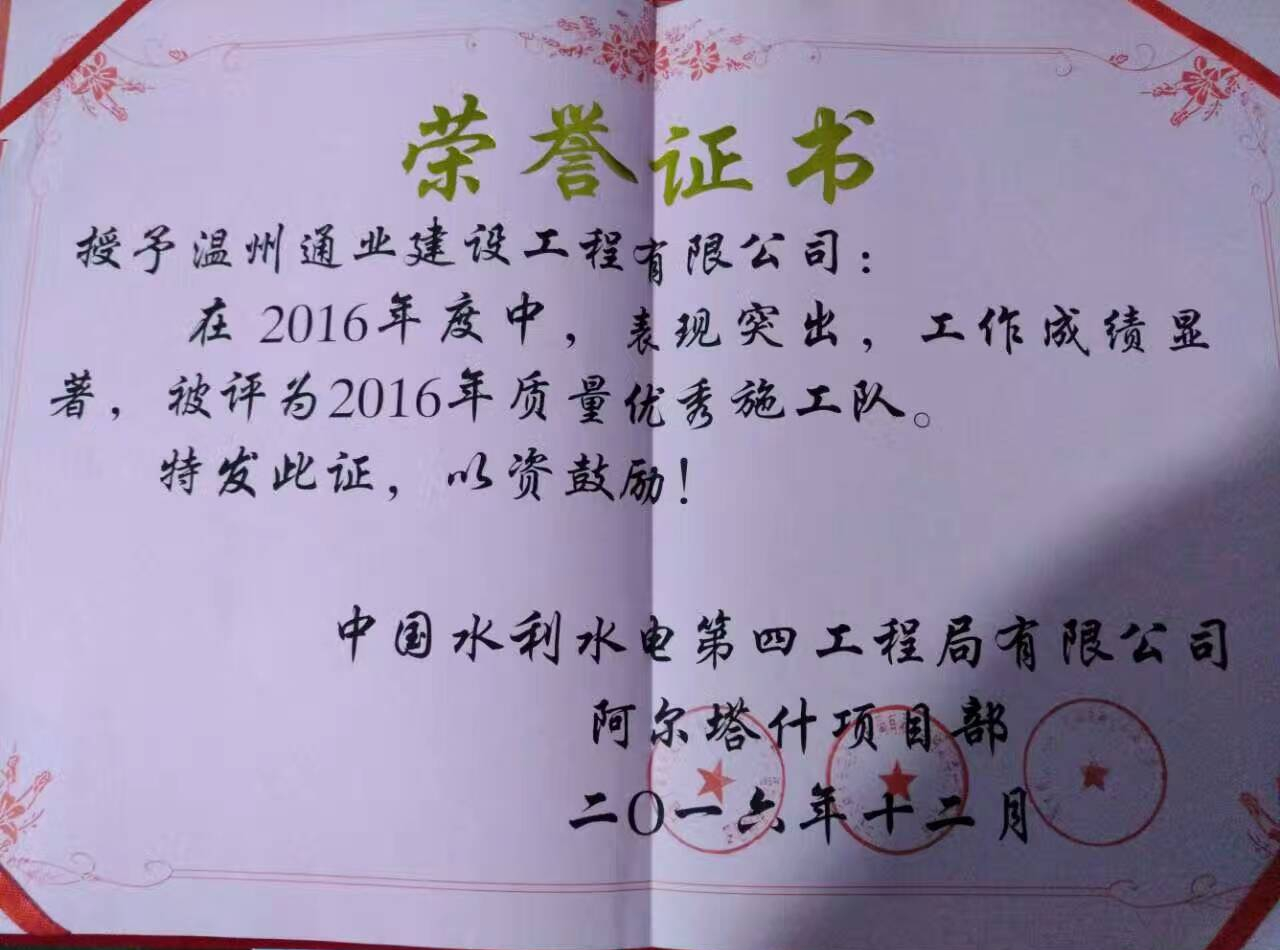 荣誉证书
授予温州通业建设工程有限公司：
在2016年度中，表现突出，工作成绩显
著，被评为2016年质量优秀施工队。
特发此证，以资鼓励！
中国水利水电第四工程局有限公司
阿尔塔什项目部
二〇一六年十二月